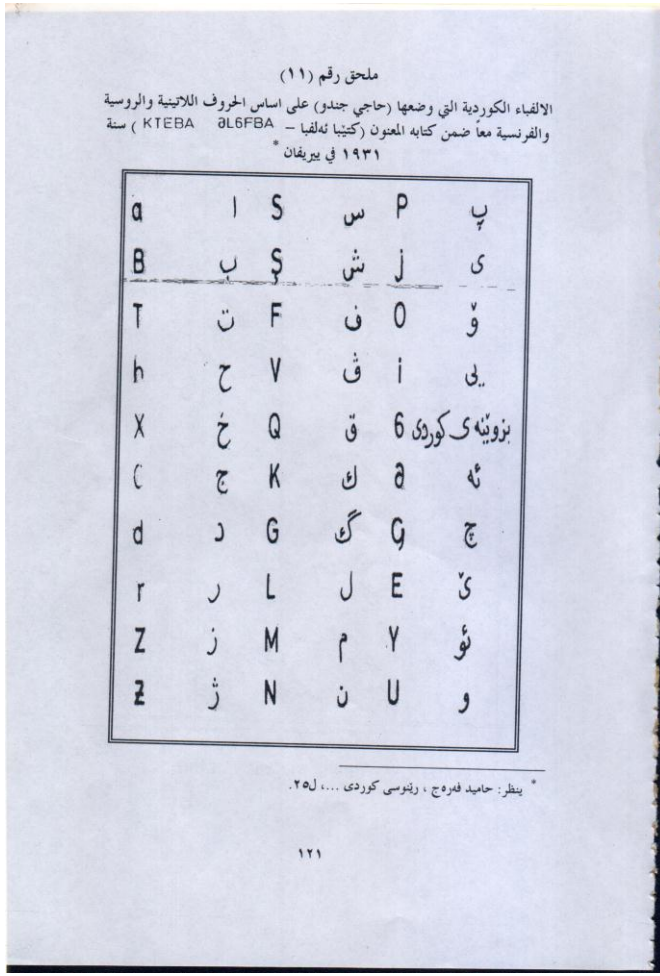 ملحق رقم (١١)
الالفباء الكوردية التي وضعها (حاجي جندو) على اساس الحروف اللاتينية والروسية
والفرنسية معاً ضمن كتابه المعنون (كتێبا ئەلفبا – KTEBA ƏL6FBA ) سنة
١٩٣١ في ييريفان *
a ا S س P پ
B ب Ş ش j ى
T ت F ف O ۆ
h ح V ڤ i يى
X خ Q ق 6 بزوێنەى كوردى
C ج K ك ə ئە
d د G گ Ç چ
r ر L ل E ێ
Z ز M م Y ئو
Ƶ ژ N ن U و
* ينظر: حاميد فەرەج ، رێنوسى كوردى ...، ل٢٥.
١٢١